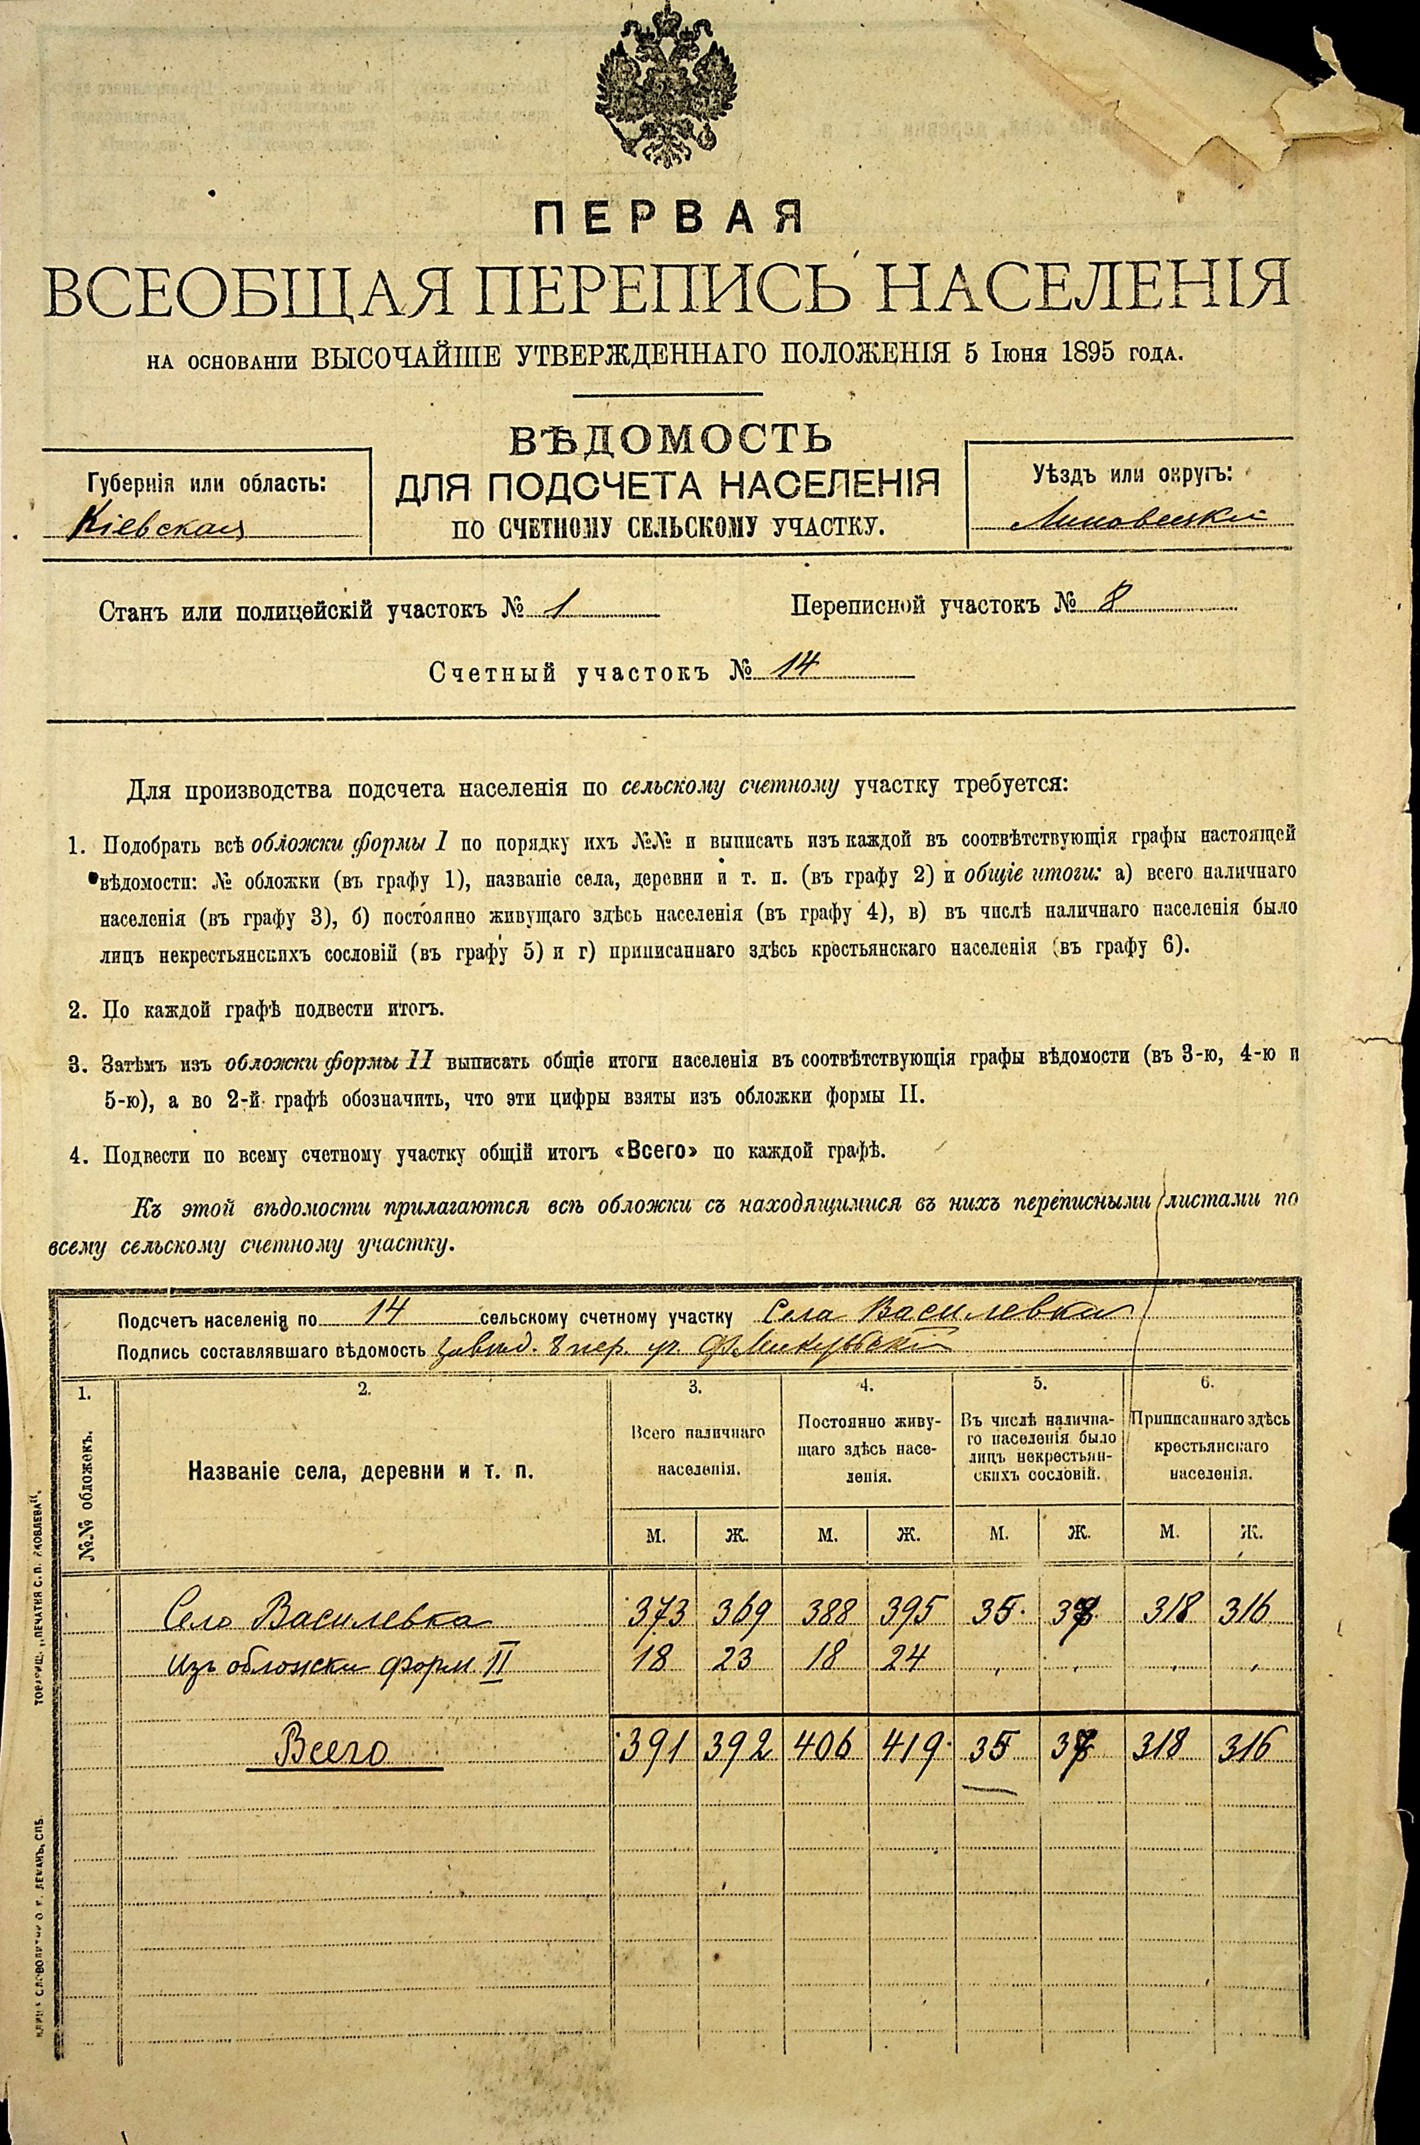 ПЕРВАЯ
ВСЕОБЩАЯ ПЕРЕПИСЬ НАСЕЛЕНІЯ
НА ОСНОВАНІИ ВЫСОЧАЙШЕ УТВЕРЖДЕННАГО ПОЛОЖЕНІЯ 5 Іюня 1895 года.
ВѢДОМОСТЬ
ДЛЯ ПОДСЧЕТА НАСЕЛЕНІЯ
ПО СЧЕТНОМУ СЕЛЬСКОМУ УЧАСТКУ.
Губернія или область:
Кіевская
Уѣздъ или округъ:
Липовецкій
Станъ или полицейскій участокъ № 1
Переписной участокъ № 8
Счетный участокъ № 14
Для производства подсчета населенія по сельскому счетному участку требуется:
1. Подобрать всѣ обложки формы I по порядку ихъ №№ и выписать изъ каждой въ соотвѣтствующія графы настоящей
вѣдомости: № обложки (въ графу 1), названіе села, деревни и т. п. (въ графу 2) и общіе итоги: а) всего наличнаго
населенія (въ графу 3), б) постоянно живущаго здѣсь населенія (въ графу 4), в) въ числѣ наличнаго населенія было
лицъ некрестьянскихъ сословій (въ графу 5) и г) приписаннаго здѣсь крестьянскаго населенія (въ графу 6).
2. По каждой графѣ подвести итогъ.
3. Затѣмъ изъ обложки формы II выписать общіе итоги населенія въ соотвѣтствующія графы вѣдомости (въ 3-ю, 4-ю и
5-ю), а во 2-й графѣ обозначить, что эти цифры взяты изъ обложки формы II.
4. Подвести по всему счетному участку общій итогъ «Всего» по каждой графѣ.
Къ этой вѣдомости прилагаются всѣ обложки съ находящимися въ нихъ переписными листами по
всему сельскому счетному участку.
Подсчетъ населенія по 14 сельскому счетному участку Села Василевка
Подпись составлявшаго вѣдомость завѣд. 8 пер. уч.
1. 2. 3. 4. 5. 6.
№№ обложекъ.
Названіе села, деревни и т. п.
Всего наличнаго
населенія.
Постоянно живу-
щаго здѣсь насе-
ленія.
Въ числѣ налична-
го населенія было
лицъ некрестьян-
скихъ сословій.
Приписаннаго здѣсь
крестьянскаго
населенія.
М. Ж. М. Ж. М. Ж. М. Ж.
Село Василевка 373 369 388 395 35 318 316
изъ обложки форм II 18 23 18 24
Всего 391 392 406 419 35 318 316
ТОВАРИЩ. „ПЕЧАТНЯ С. П. ЯКОВЛЕВА".
СЛОВОЛИТНИ О. И. ЛЕМАНЪ, СПБ